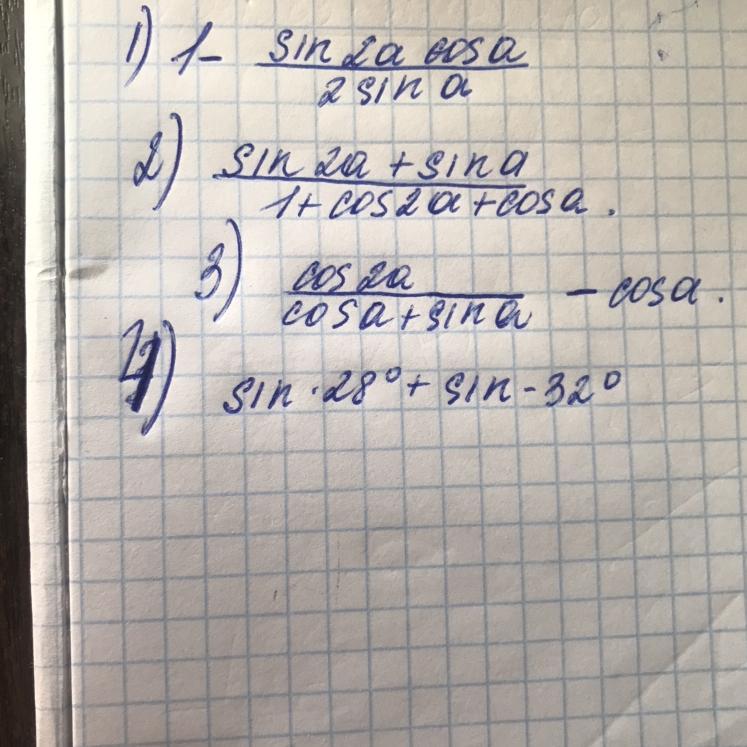 1) 1- sin 2a cos a / 2 sin a
2) sin 2a + sin a / 1 + cos 2a + cos a.
3) cos 2a / cos a + sin a - cos a.
4) sin · 28° + sin - 32°